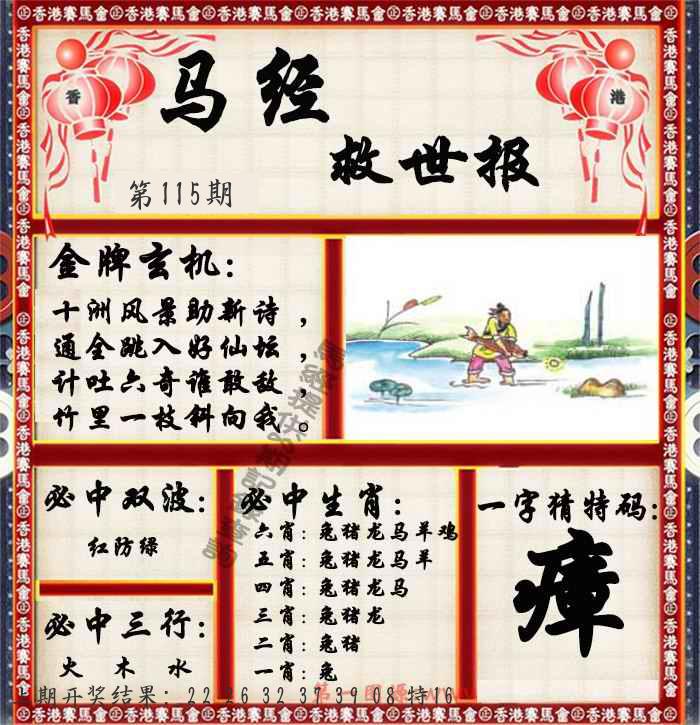 香港賽馬會 香港賽馬會 香港賽馬會 香港賽馬會 香港賽馬會 香港賽馬會
香
港
马经
救世报
第115期
金牌玄机：
十洲风景助新诗，
通全跳入好仙坛，
计吐六奇谁敢敌，
竹里一枝斜向我。
必中双波：
红防绿
必中三行：
火 木 水
必中生肖：
六肖：兔猪龙马羊鸡
五肖：兔猪龙马羊
四肖：兔猪龙马
三肖：兔猪龙
二肖：兔猪
一肖：兔
一字猜特码：
瘴
期开奖结果：22 26 32 37 39 08 特16